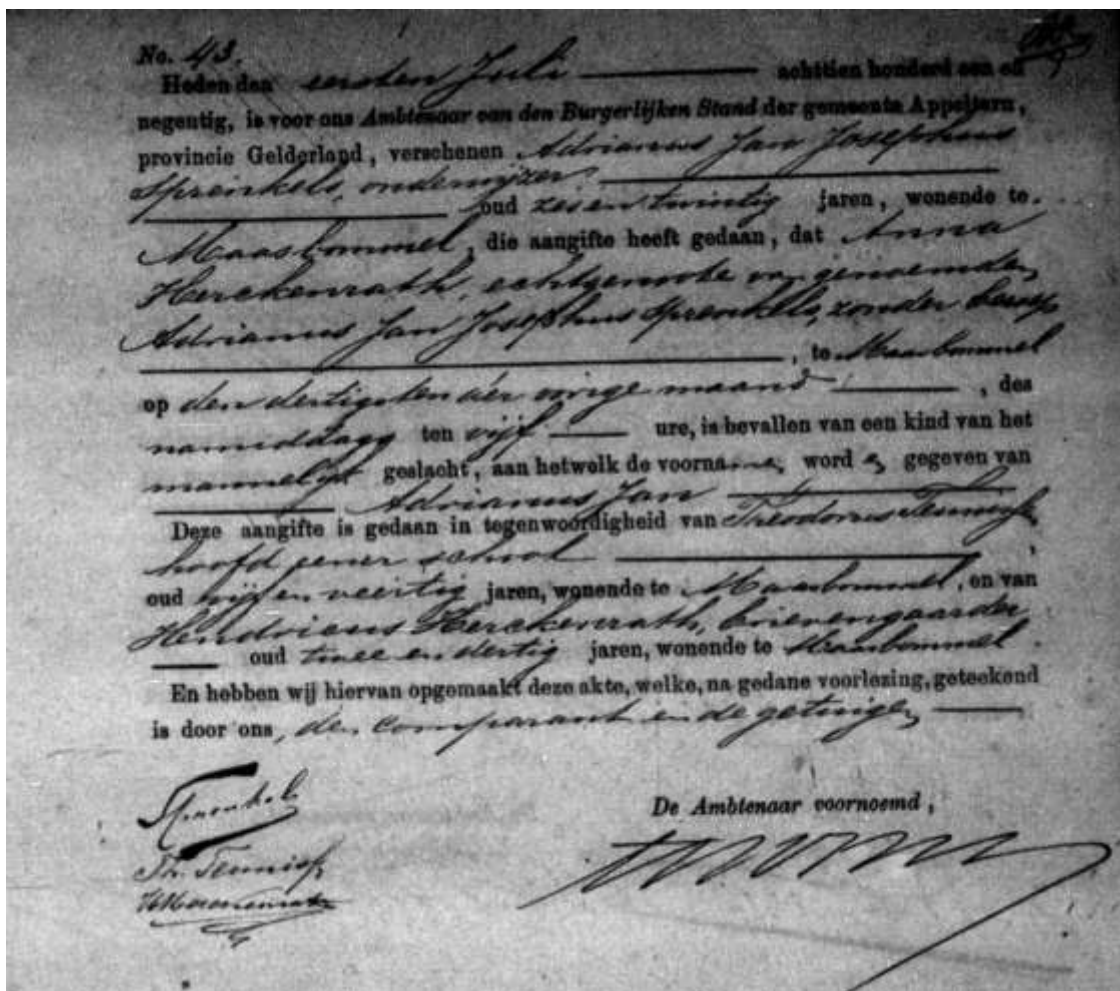 No. 43.
Heden den eersten Juli achttien honderd een en
negentig, is voor ons Ambtenaar van den Burgerlijken Stand der gemeente Appeltern,
provincie Gelderland, verschenen Adrianus Jan Josephus
Sprenkels, onderwijzer
oud zes en twintig jaren, wonende te
Maasbommel, die aangifte heeft gedaan, dat Anna
Herckenrath, echtgenoote van genoemden
Adrianus Jan Josephus Sprenkels, zonder beroep
, te Maasbommel
op den dertigsten der vorige maand, des
namiddags ten vijf ure, is bevallen van een kind van het
mannelijk geslacht, aan hetwelk de voornamen worden gegeven van
Adrianus Jan
Deze aangifte is gedaan in tegenwoordigheid van Theodorus Teunissen,
hoofd eener school,
oud vijf en veertig jaren, wonende te Maasbommel, en van
Hendricus Herckenrath, brievengaarder
oud twee en dertig jaren, wonende te Maasbommel.
En hebben wij hiervan opgemaakt deze akte, welke, na gedane voorlezing, geteekend
is door ons, den comparant en de getuigen
Sprenkels
De Ambtenaar voornoemd,
Th. Teunissen
HHerckenrath